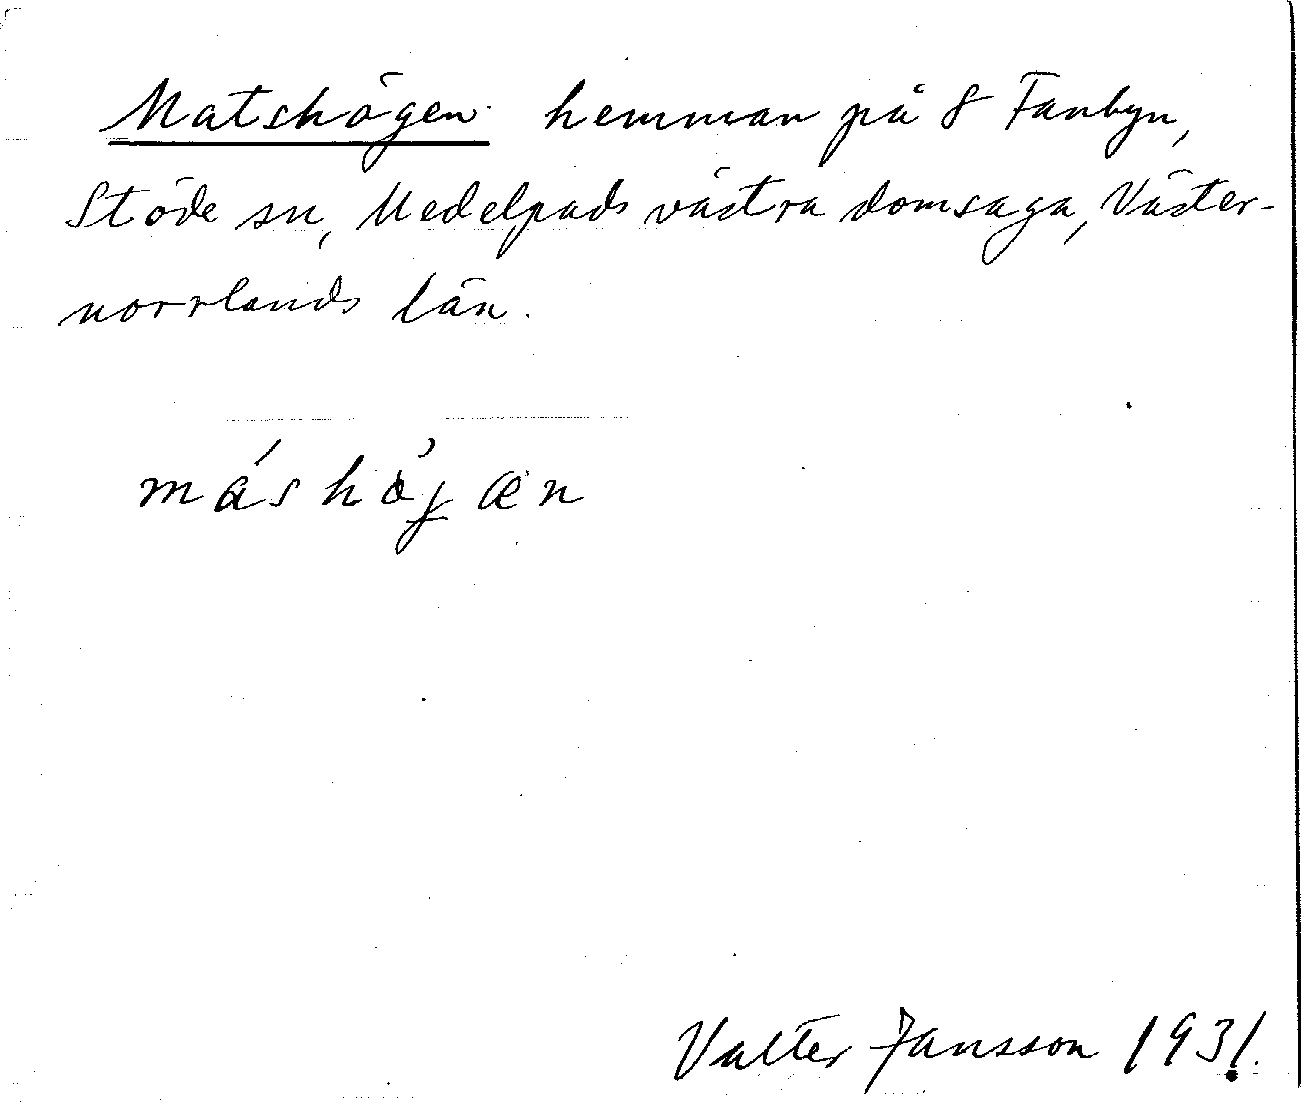 Matshögen hemman på 8 Fanbyn,
Stöde sn, Medelpads västra domsaga, Väster-
norrlands län.
máshö̀jæn
Valter Jansson 1931.